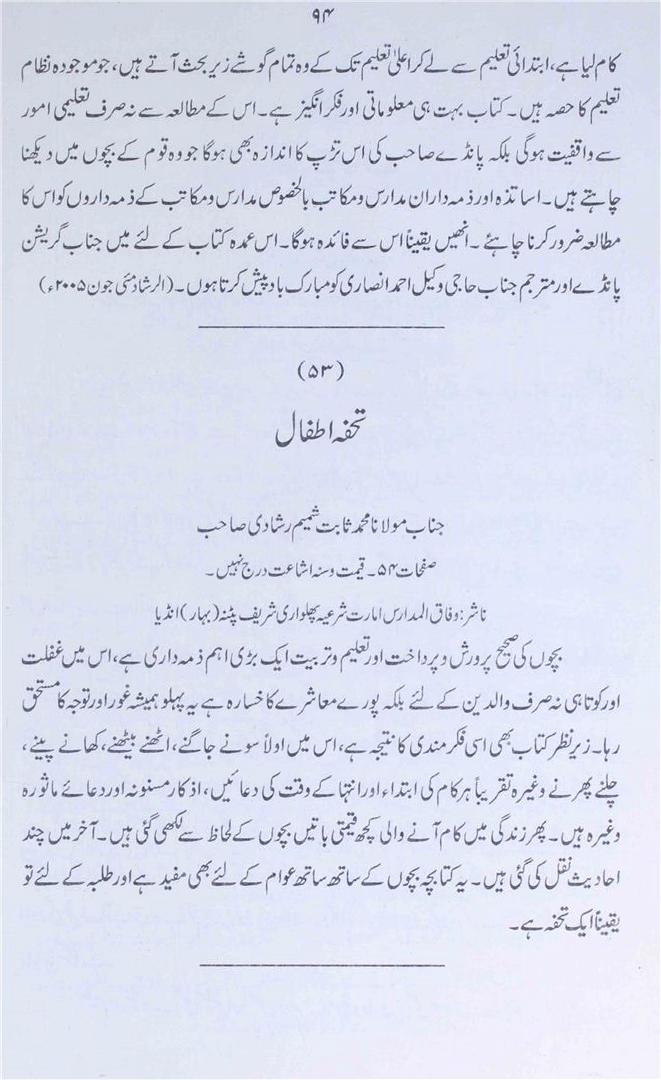 ۹۴
کام لیا ہے، ابتدائی تعلیم سے لے کر اعلیٰ تعلیم تک کے وہ تمام گوشے زیر بحث آتے ہیں، جو موجودہ نظام
تعلیم کا حصہ ہیں۔ کتاب بہت ہی معلوماتی اور فکر انگیز ہے۔ اس کے مطالعہ سے نہ صرف تعلیمی امور
سے واقفیت ہوگی بلکہ پانڈے صاحب کی اس تڑپ کا اندازہ بھی ہوگا جو وہ قوم کے بچوں میں دیکھنا
چاہتے ہیں۔ اساتذہ اور ذمہ داران مدارس و مکاتب بالخصوص مدارس و مکاتب کے ذمہ داروں کو اس کا
مطالعہ ضرور کرنا چاہئے۔ انھیں یقیناً اس سے فائدہ ہوگا۔ اس عمدہ کتاب کے لئے میں جناب گریشن
پانڈے اور مترجم جناب حاجی وکیل احمد انصاری کو مبارک باد پیش کرتا ہوں۔ (الرشاد مئی جون ۲۰۰۵ء)
(۵۳)
تحفہ اطفال
جناب مولانا محمد ثابت شمیم رشادی صاحب
صفحات ۵۴۔ قیمت و سنہ اشاعت درج نہیں۔
ناشر: وفاق المدارس امارت شرعیہ پھلواری شریف پٹنہ (بہار) انڈیا
بچوں کی صحیح پرورش و پرداخت اور تعلیم و تربیت ایک بڑی اہم ذمہ داری ہے، اس میں غفلت
اور کوتاہی نہ صرف والدین کے لئے بلکہ پورے معاشرے کا خسارہ ہے یہ پہلو ہمیشہ غور اور توجہ کا مستحق
رہا۔ زیر نظر کتاب بھی اسی فکر مندی کا نتیجہ ہے، اس میں اولاً سونے جاگنے، اٹھنے بیٹھنے، کھانے پینے،
چلنے پھرنے وغیرہ تقریباً ہر کام کی ابتداء اور انتہا کے وقت کی دعائیں، اذکار مسنونہ اور دعائے ماثورہ
وغیرہ ہیں۔ پھر زندگی میں کام آنے والی کچھ قیمتی باتیں بچوں کے لحاظ سے لکھی گئی ہیں۔ آخر میں چند
احادیث نقل کی گئی ہیں۔ یہ کتابچہ بچوں کے ساتھ ساتھ عوام کے لئے بھی مفید ہے اور طلبہ کے لئے تو
یقیناً ایک تحفہ ہے۔